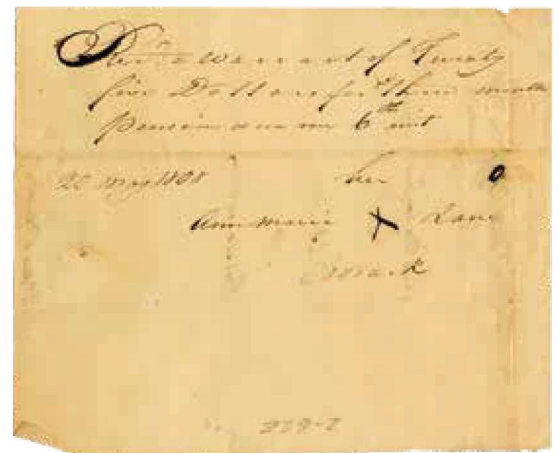 Rec'd a warrant of Twenty
five Dollars for three months
Pension due me 6th inst
20 May 1808 her
Ann Maria X Lane
mark